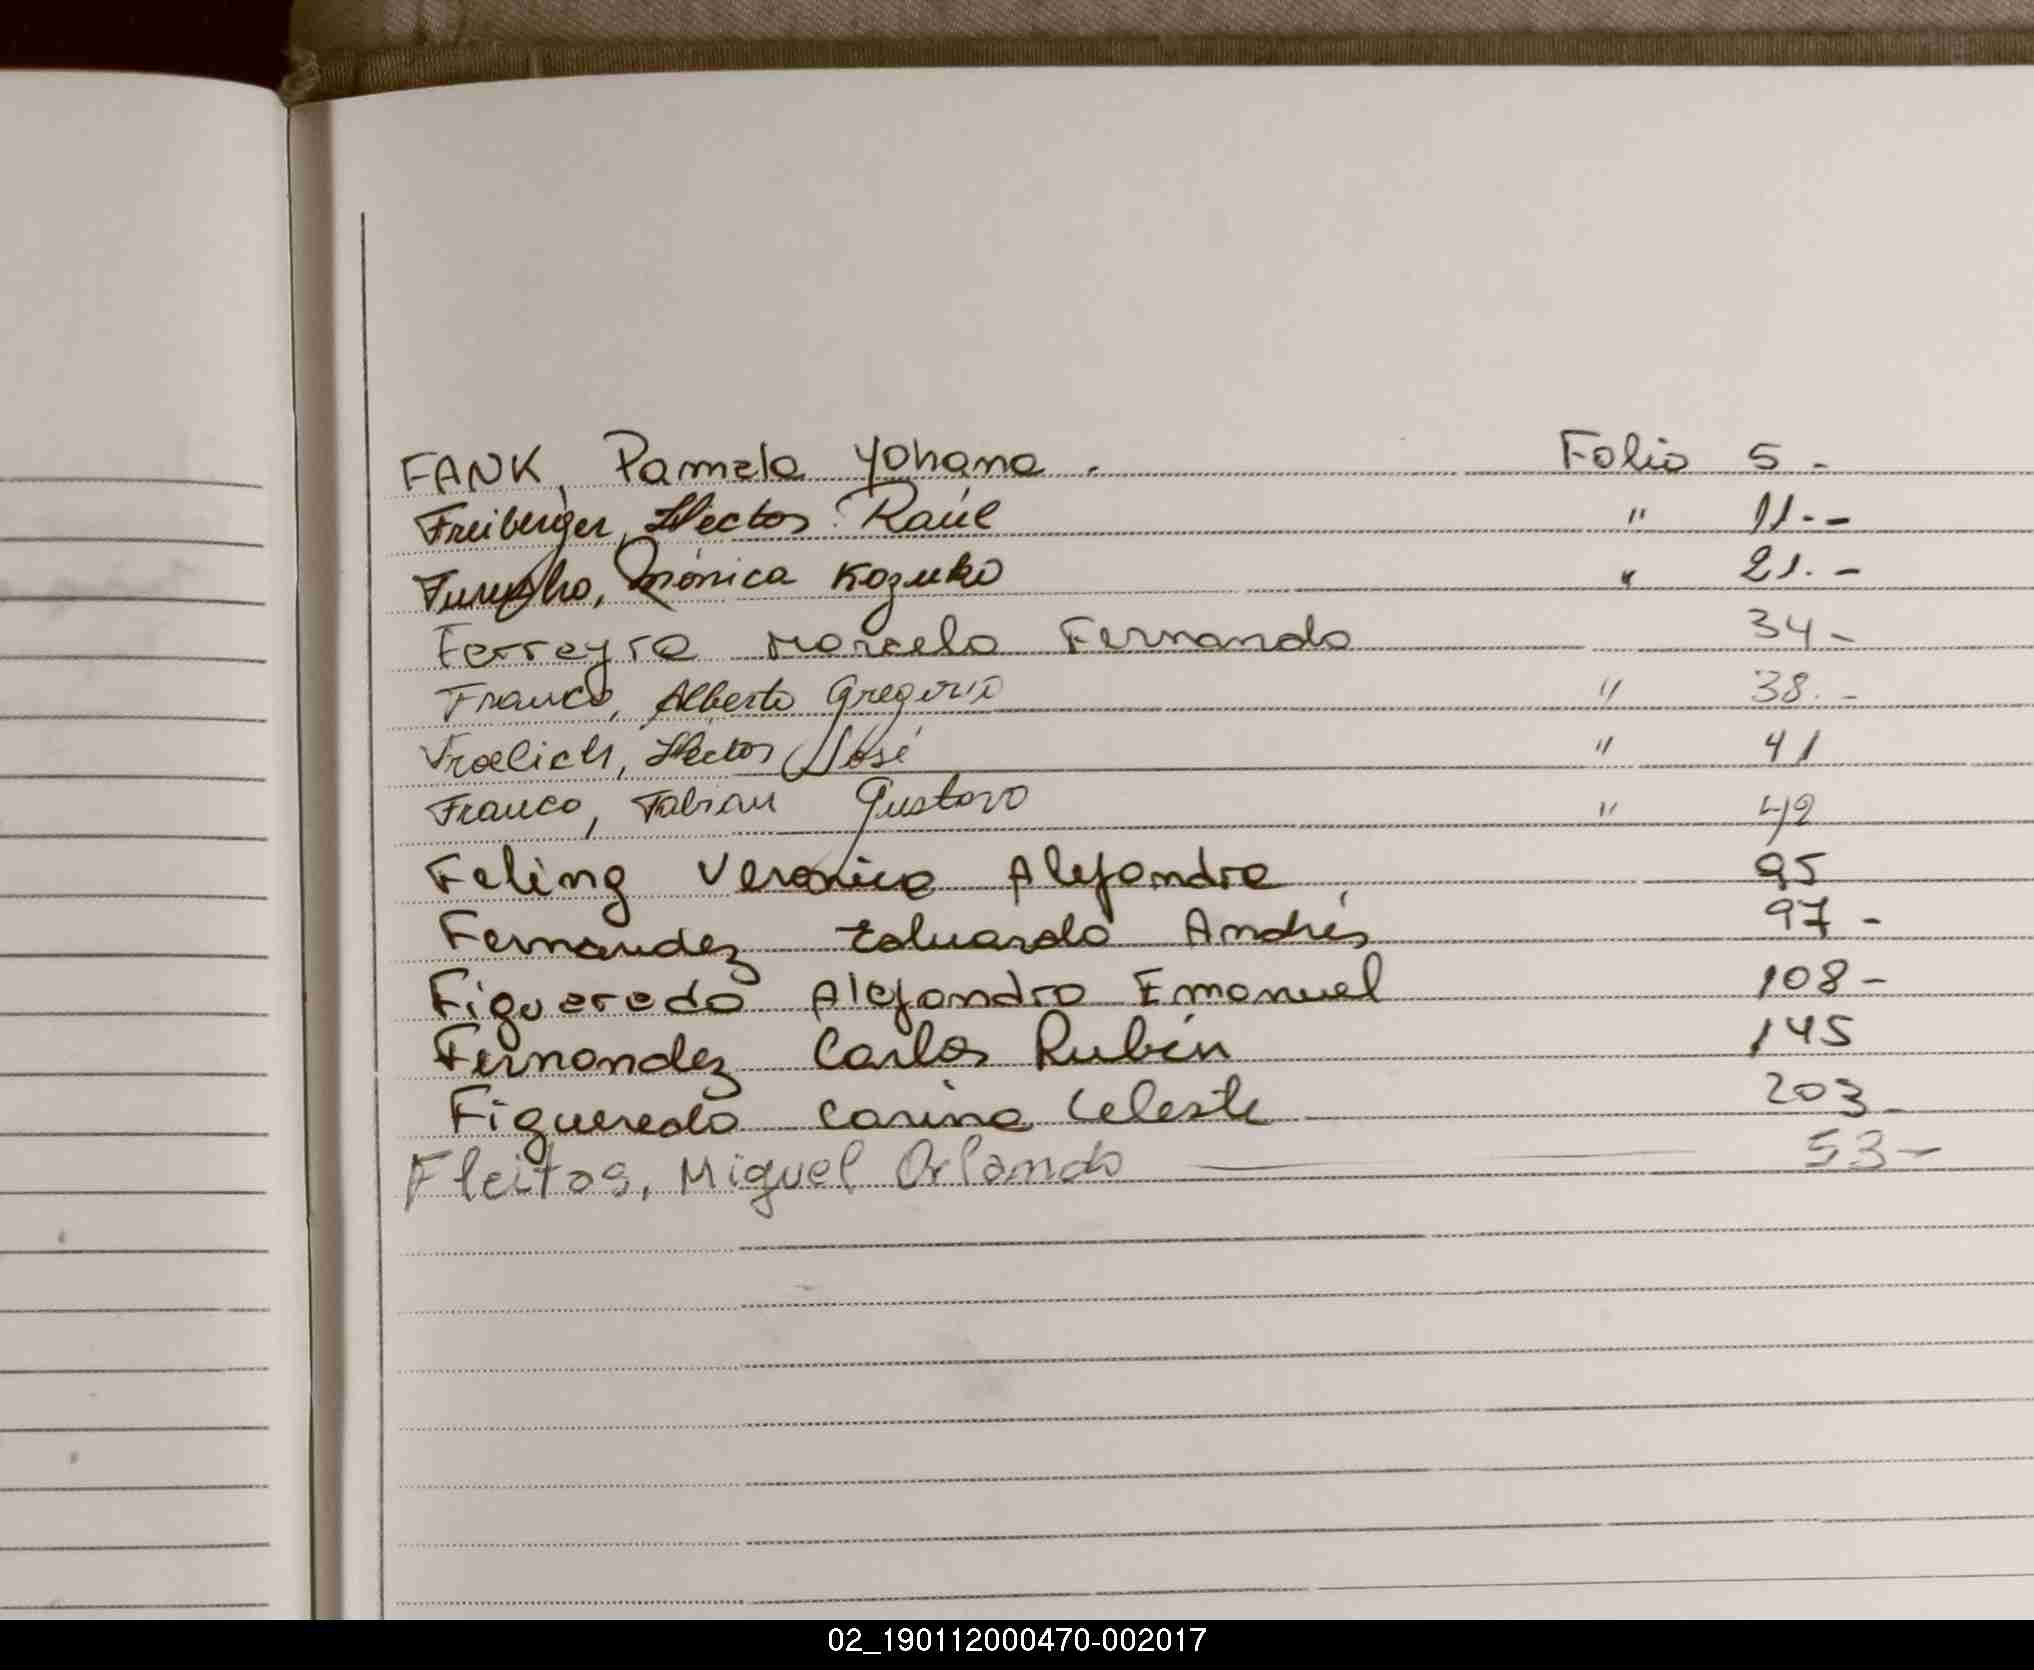 FANK, Pamela Yohana. Folio 5-
Freiberger, Héctor Raúl " 11.-
Mónica Kazuko " 21.-
Ferreyra Marcelo Fernando 34-
Franco, Alberto Gregorio " 38.-
Froelich, Héctor José " 41
Franco, Fabian Gustavo " 42
Feling Veronica Alejandra 95
Fernandez Eduardo Andrés 97-
Figueredo Alejandro Emanuel 108-
Fernandez Carlos Rubén 145
Figueredo Carina Celeste 203-
Fleitas, Miguel Orlando 53-
02_190112000470-002017